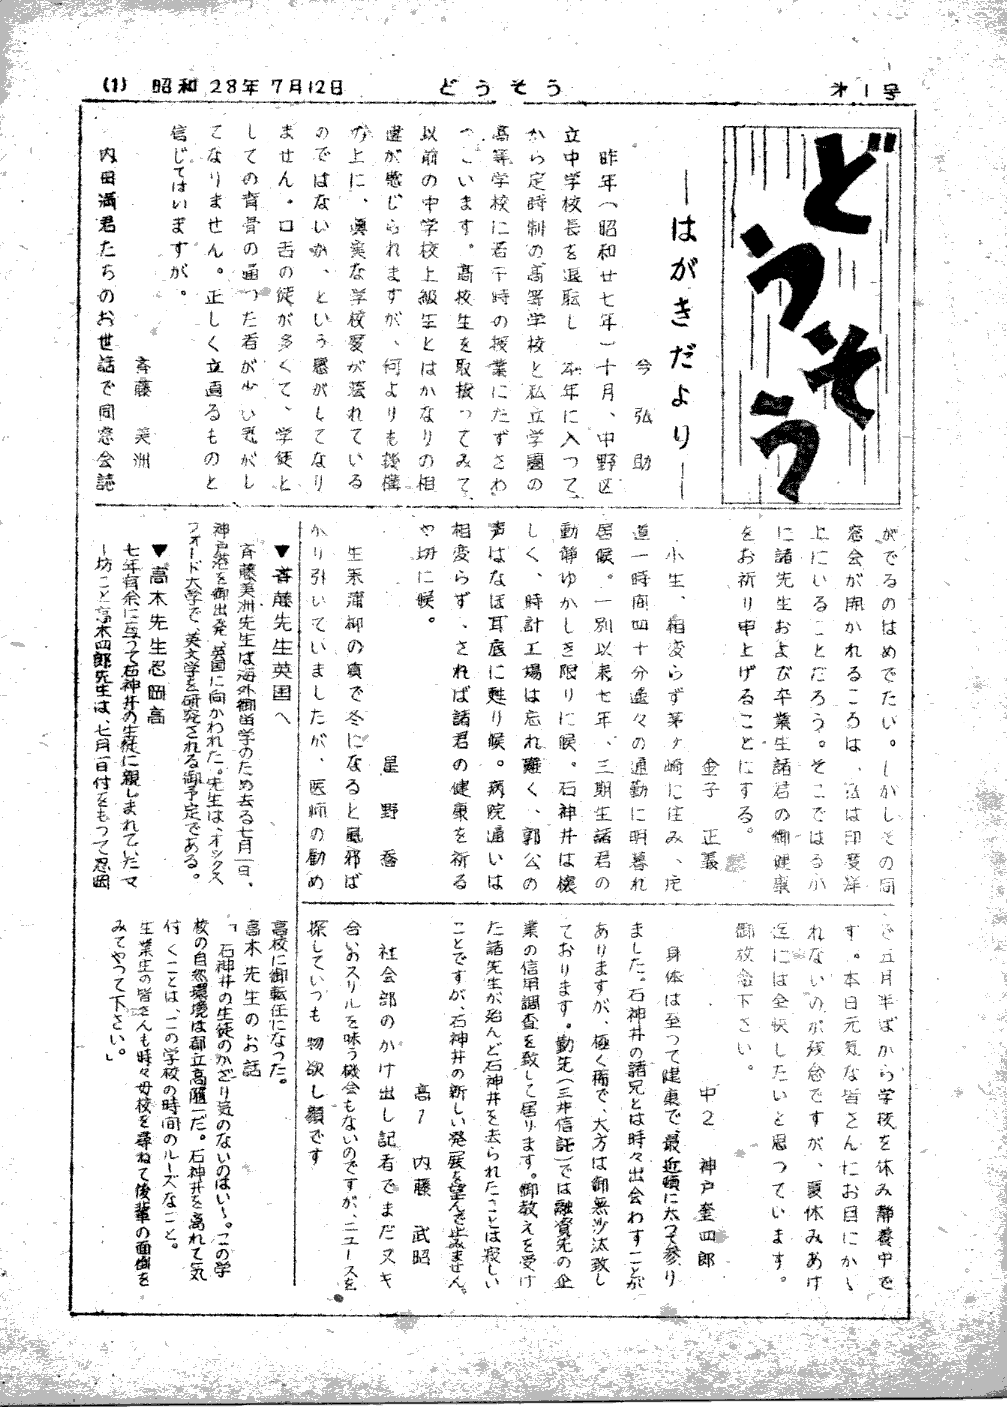 (1) 昭和28年7月12日 どうそう 第1号
どうそう
―はがきだより―
今 弘助
昨年(昭和廿七年)十月、中野区
立中学校長を退転し 本年に入つて、
から定時制の高等学校と私立学園の
高等学校に若干時の授業にたずさわ
つています。高校生を取扱つてみて、
以前の中学校上級生とはかなりの相
違が感じられますが、何よりも機構
の上に、真実な学校愛が薄れている
のではないか、という感がしてなり
ません。口舌の徒が多くて、学徒と
しての背骨の通つた者が少い気がし
てなりません。正しく立直るものと
信じてはいますが。
斉藤 美洲
内田満君たちのお世話で同窓会誌
がでるのはめでたい。しかしその同
窓会が開かれるころは、私は印度洋
上にいることだろう。そこではるか
に諸先生および卒業生諸君の御健康
をお祈り申上げることにする。
金子 正義
小生、相変らず茅ヶ崎に住み、片
道一時間四十分遙々の通勤に明暮れ
居候。一別以来七年、三期生諸君の
動静ゆかしき限りに候。石神井は懐
しく、時計工場は忘れ難く、郭公の
声はなほ耳底に甦り候。病院通いは
相変らず、されば諸君の健康を祈る
や切に候。
星野 香
生来蒲柳の質で冬になると風邪ば
かり引いていましたが、医師の勧め
で五月半ばから学校を休み静養中で
す。本日元気な皆さんにお目にかゝ
れないのが残念ですが、夏休みあけ
迄には全快したいと思つています。
御放念下さい。
中2 神戸奎四郎
身体は至つて健康で、最近頓に太つて参り
ました。石神井の諸兄とは時々出会わすことが
ありますが、極く稀で、大方は御無沙汰致し
ております。勤先(三井信託)では融資先の企
業の信用調査を致して居ります。御教えを受け
た諸先生が殆んど石神井を去られたことは寂しい
ことですが、石神井の新しい発展を望んで止みません。
高1 内藤 武昭
社会部のかけ出し記者でまだヌキ
合いのスリルを味う機会もないのですが、ニュースを
探していつも物欲し顔です
▼斉藤先生英国へ
斉藤美洲先生は海外御留学のため去る七月一日、
神戸港を御出発、英国に向かわれた。先生は、オックス
フォード大学で、英文学を研究される御予定である。
▼高木先生忍岡高
七年有余に亘つて石神井の生徒に親しまれていたマ
ー坊こと高木四郎先生は、七月一日付をもつて忍岡
高校に御転任になつた。
高木先生のお話
「石神井の生徒のかざり気のないのはいゝ。この学
校の自然環境は都立高随一だ。石神井を離れて気
付くことは、この学校の時間のルーズなこと。
卒業生の皆さんも時々母校を尋ねて後輩の面倒を
みてやつて下さい。」